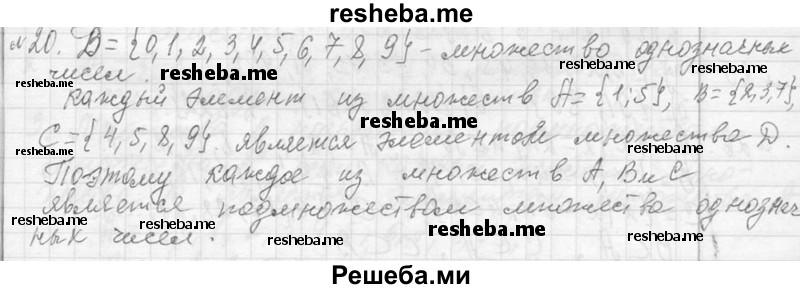 resheba.me
№20. D={0,1,2,3,4,5,6,7,8,9} - множество однозначных
чисел.
resheba.me resheba.me resheba.me
каждый элемент из множеств A={1;5}, B={2,3,7},
resheba.me
C={4,5,8,9}. является элементом множества D.
resheba.me resheba.me
Поэтому каждое из множеств A, B и C
является подмножеством множества однознач
resheba.me resheba.me resheba.me
ных чисел.
resheba.me
Решеба.ми